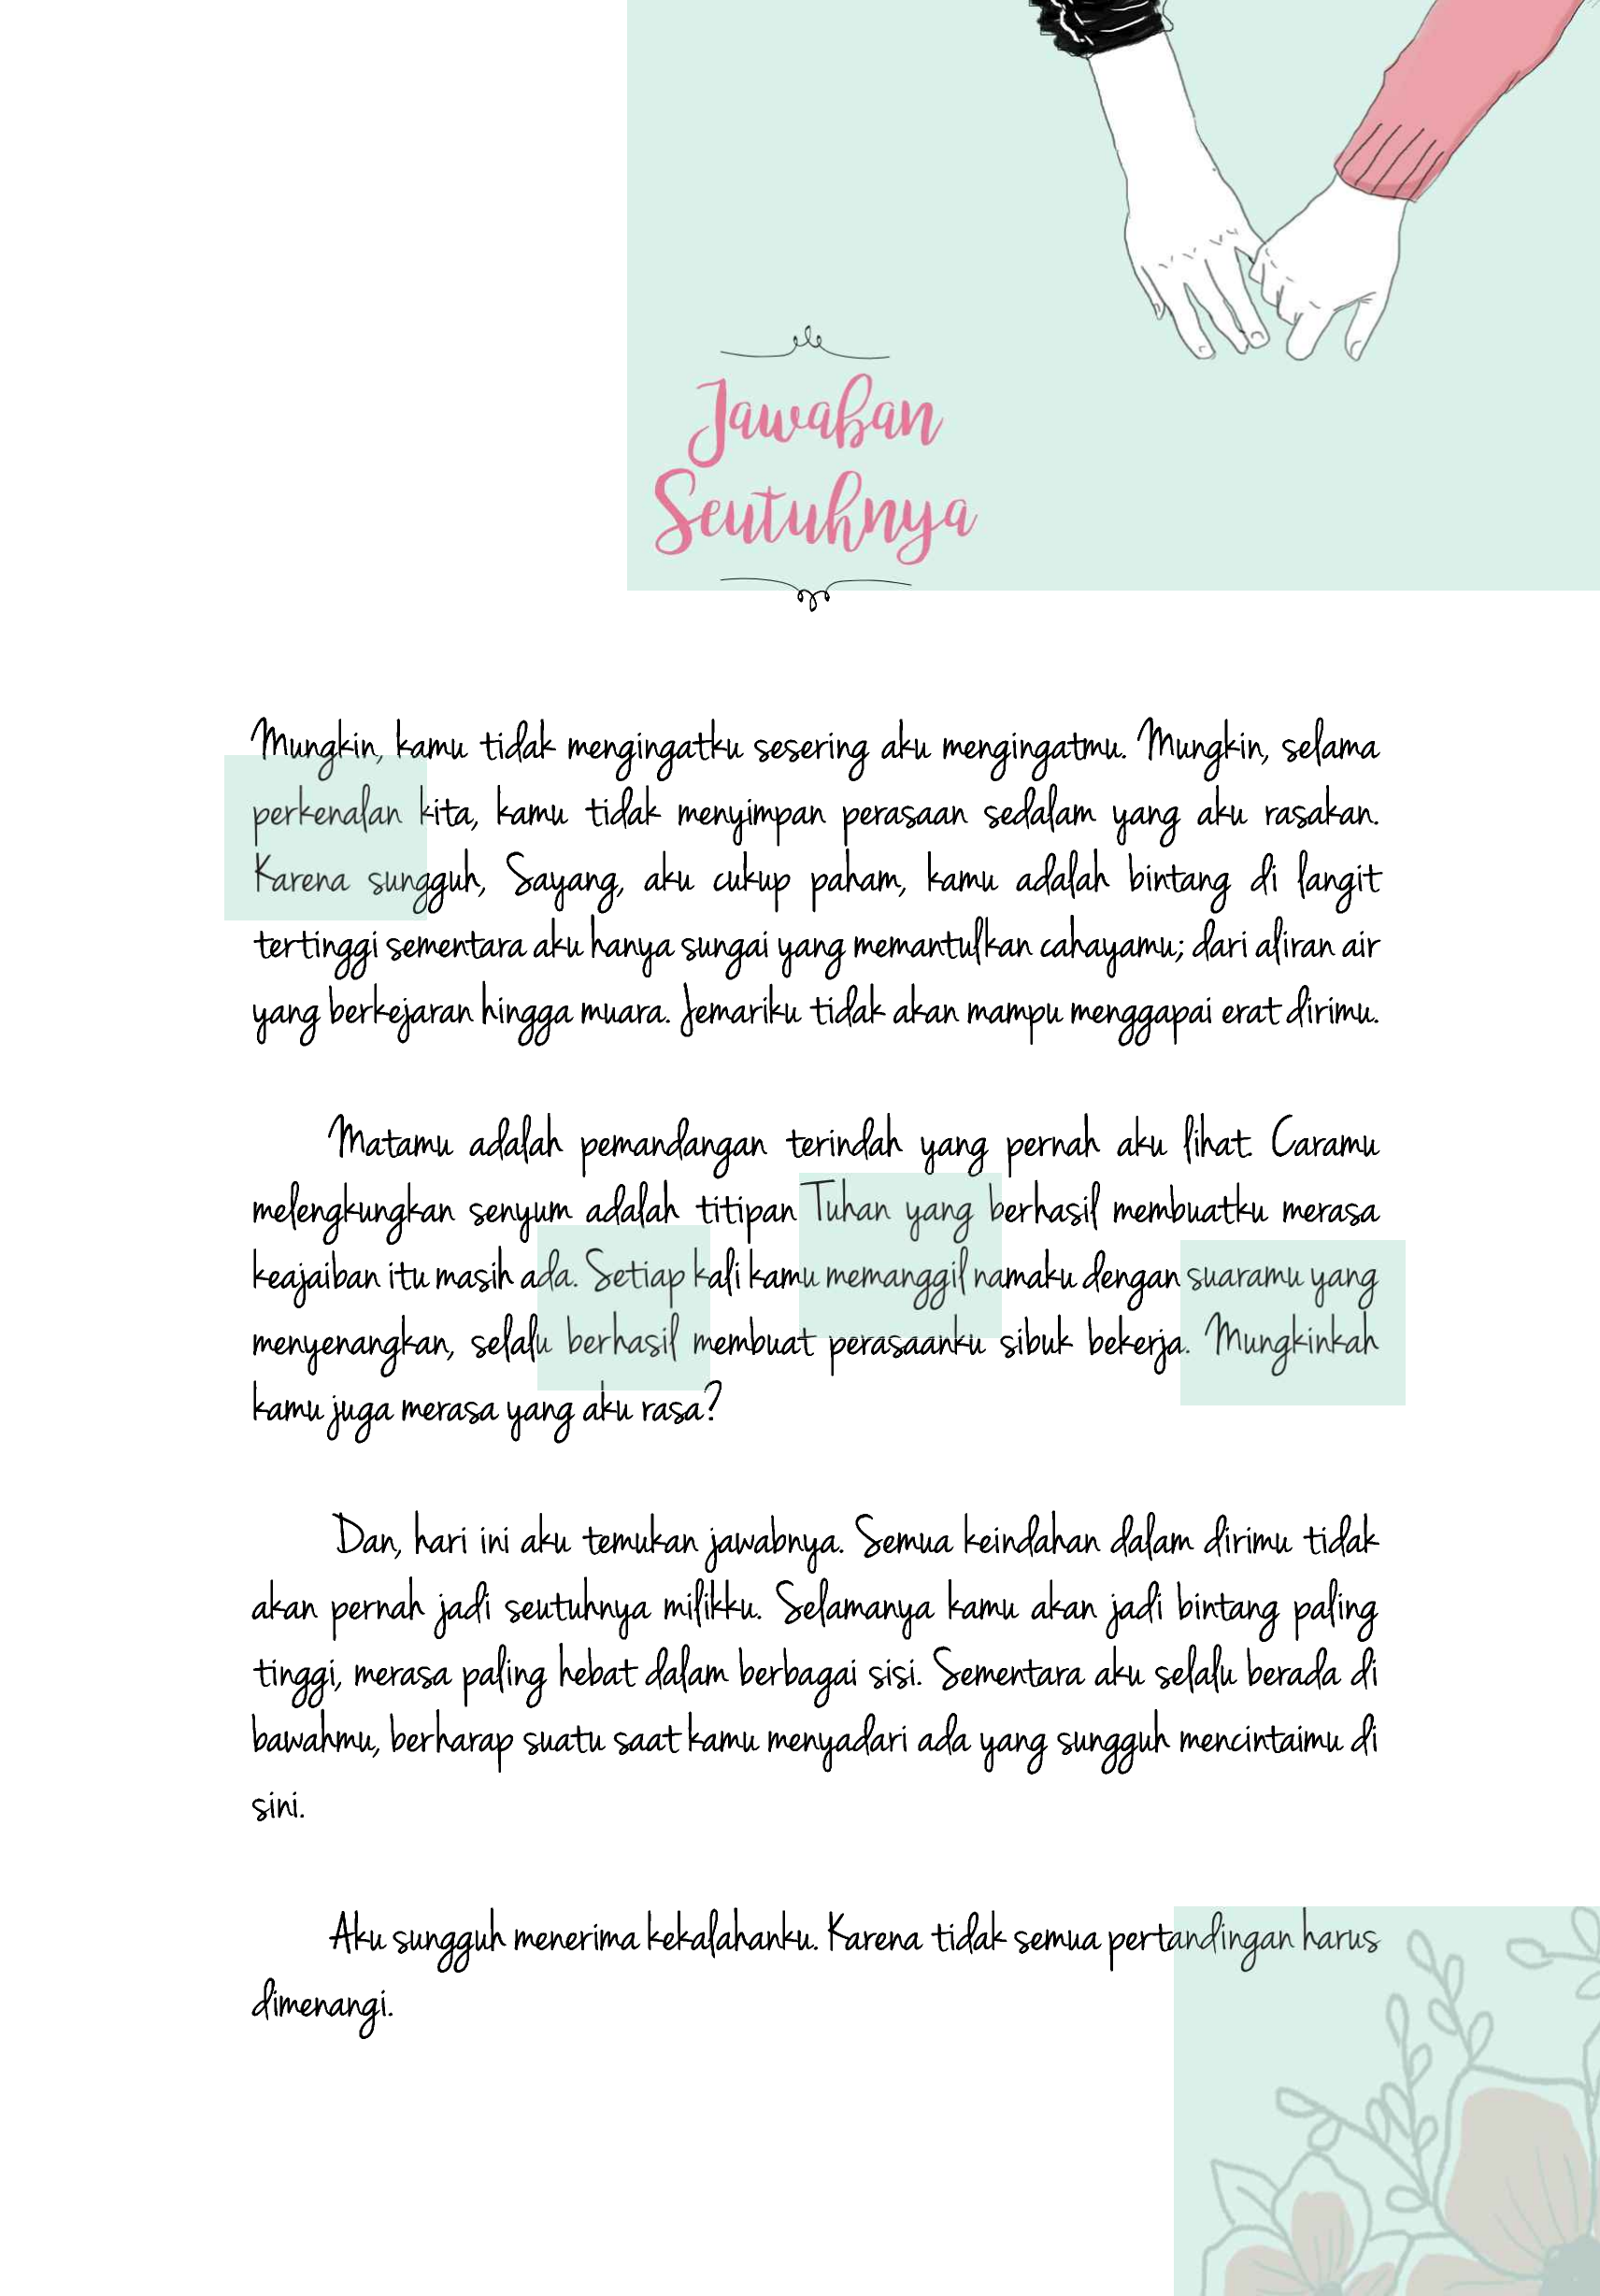 Jawaban
Seutuhnya
Mungkin, kamu tidak mengingatku sesering aku mengingatmu. Mungkin, selama
perkenalan kita, kamu tidak menyimpan perasaan sedalam yang aku rasakan.
Karena sungguh, Sayang, aku cukup paham, kamu adalah bintang di langit
tertinggi sementara aku hanya sungai yang memantulkan cahayamu; dari aliran air
yang berkejaran hingga muara. Jemariku tidak akan mampu menggapai erat dirimu.
Matamu adalah pemandangan terindah yang pernah aku lihat. Caramu
melengkungkan senyum adalah titipan Tuhan yang berhasil membuatku merasa
keajaiban itu masih ada. Setiap kali kamu memanggil namaku dengan suaramu yang
menyenangkan, selalu berhasil membuat perasaanku sibuk bekerja. Mungkinkah
kamu juga merasa yang aku rasa?
Dan, hari ini aku temukan jawabnya. Semua keindahan dalam dirimu tidak
akan pernah jadi seutuhnya milikku. Selamanya kamu akan jadi bintang paling
tinggi, merasa paling hebat dalam berbagai sisi. Sementara aku selalu berada di
bawahmu, berharap suatu saat kamu menyadari ada yang sungguh mencintaimu di
sini.
Aku sungguh menerima kekalahanku. Karena tidak semua pertandingan harus
dimenangi.